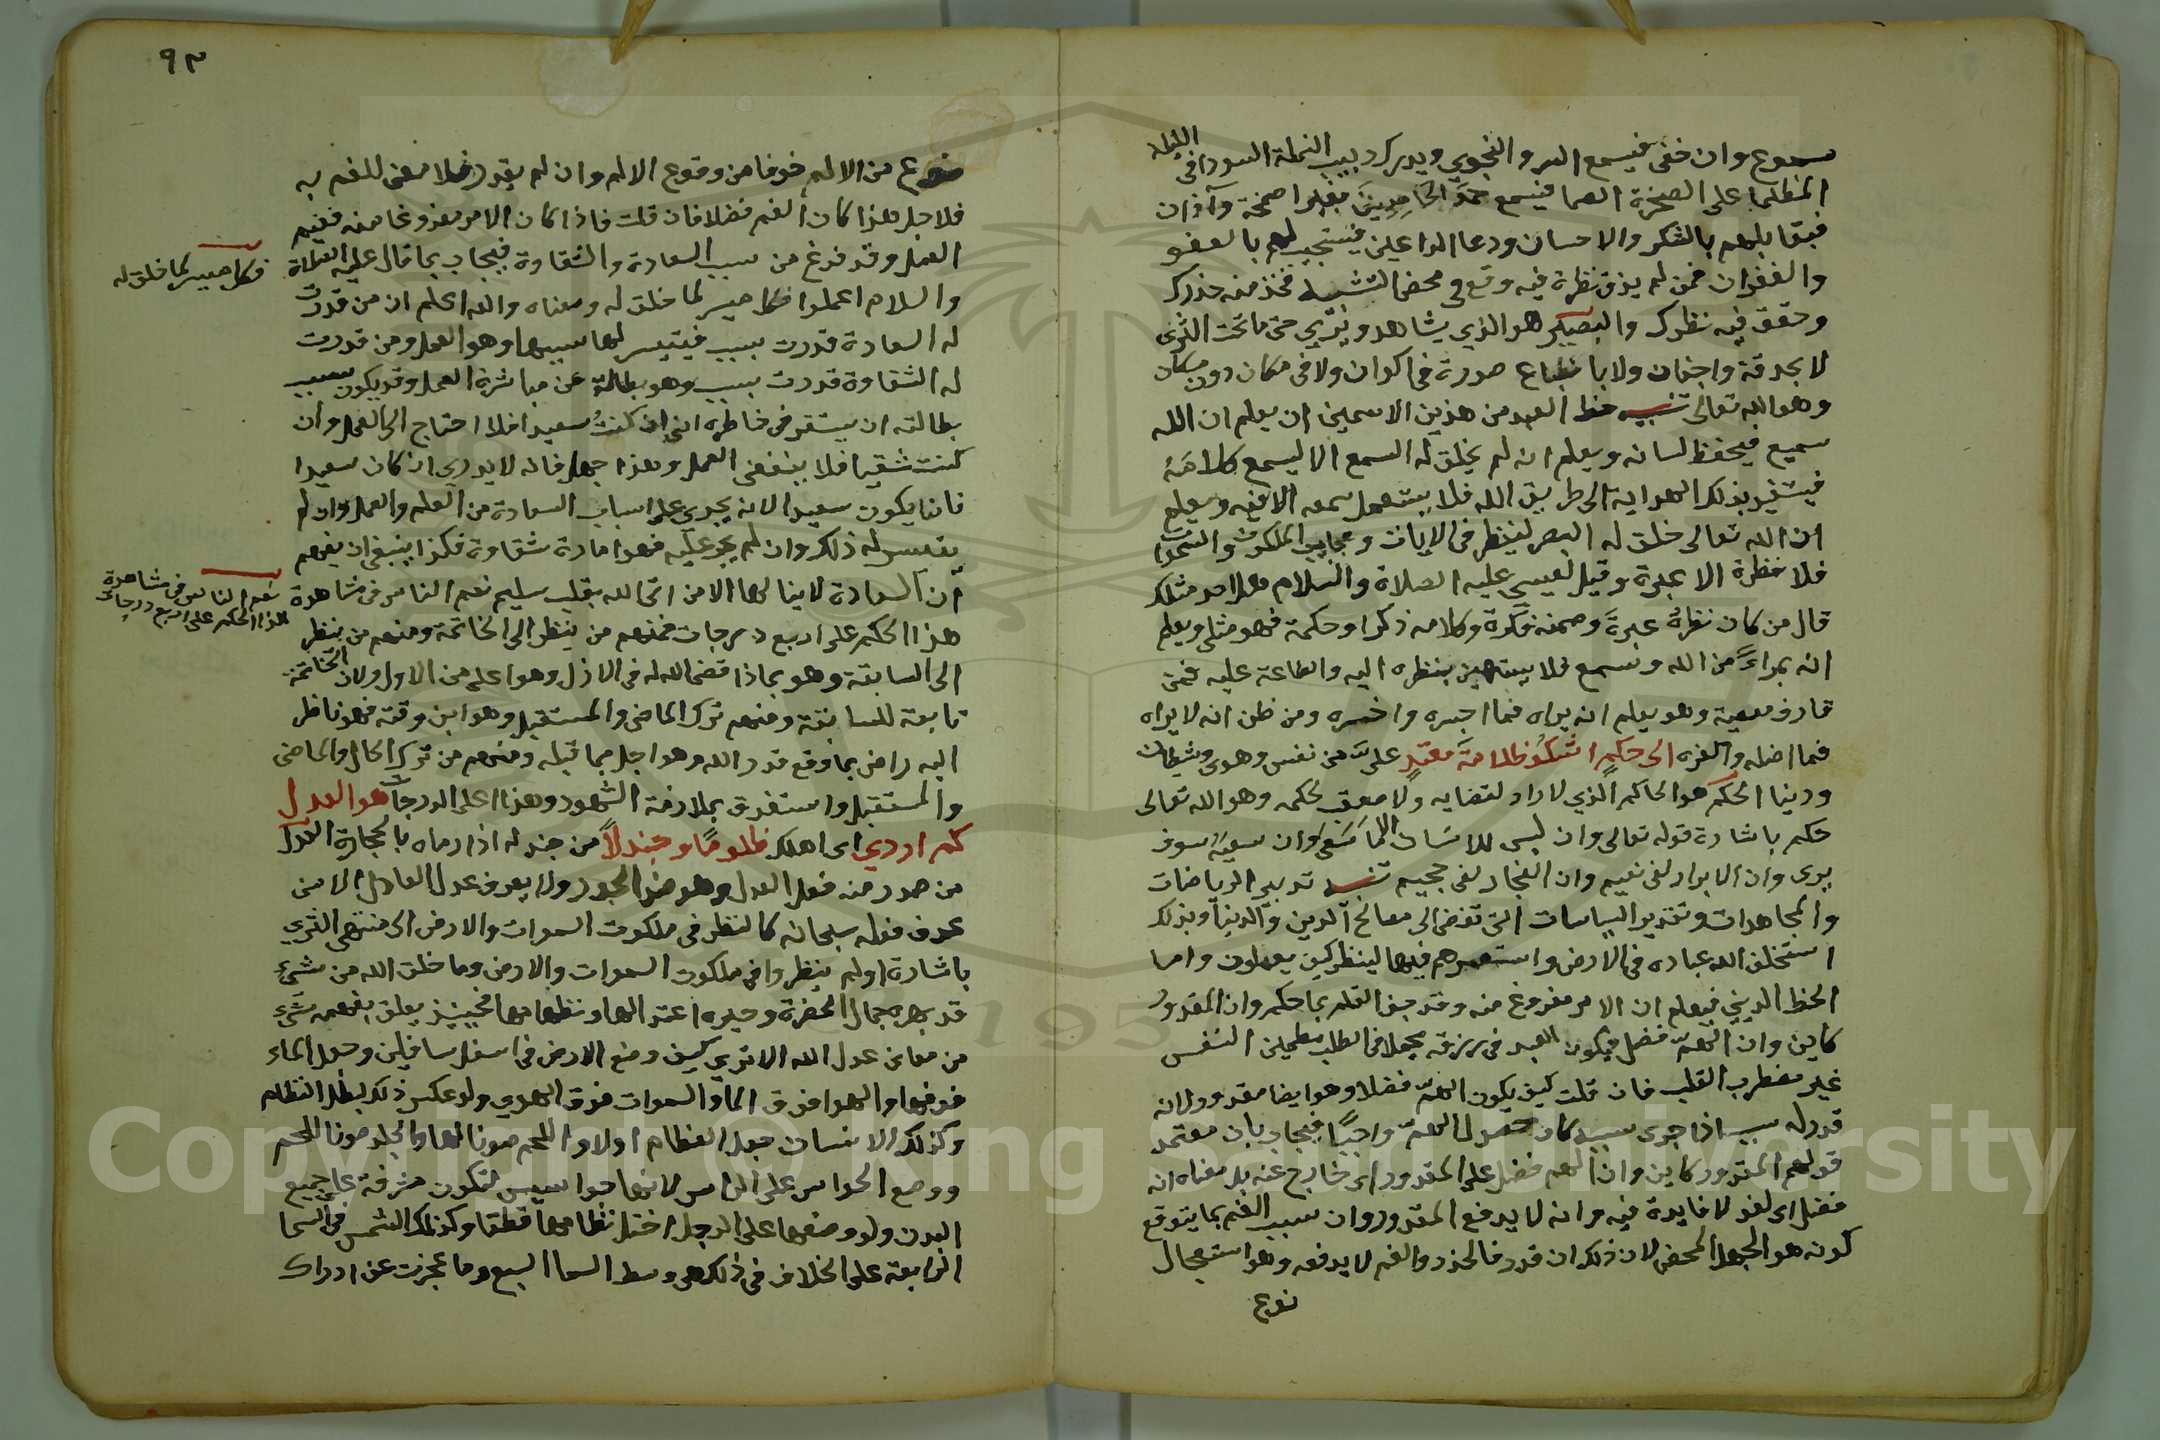 سموع وان خفى فيسمع السر والنجوي ويدرك دبيب النملة السودا فى الليلة
المظلما على الصخرة الصما فيسمع حمدَ الحَامِدِينَ بغير اصمخة وآذان
فيقابلهم بالشكر والاحسان ودعا الداعين فيستجيب لهم بالعفو
والغفران فمن لم يذق نظرة فيه وقع في محض التشبيه فخذ منه حذرك
وحقق فيه نظرك والبصير هو الذي يشاهد ويَرَي حتى ما تحت الثرى
لا بحدقة واجفان ولا بانطباع صورة في اكوان ولا في مكان دون مكان
وهو الله تعالى تنبيه حظ العبد من هذين الاسمين ان يعلم ان الله
سميع فيحفظ لسانه ويعلم انه لم يخلق له السمع الا ليسمع كلامَهُ
فيستفيد بذلك الهداية الى طريق الله فلا يستعمل سمعه الا فيه ويعلم
ان الله تعالى خلق له البصر لينظر في الايات وعجايب الملكوت والسموات
فلا نظرة الا عبرة وقيل لعيسى عليه الصلاة والسلام هل احد مثلك
قال من كان نظرهُ عبرةً وصمته فكرة وكلامه ذكرا وحكمة فهو مثلي ويعلم
انه بمراءً من الله وسمع فلا يستهين بنظره اليه واطلاعه عليه فمن
قارف معصية وهو يعلم انه يراه فما اجسره واخسره ومن ظن انه لا يراه
فما اضله واكفره الى حكمٍ اشكُو ظلامةَ معتدٍ علىَّ من نفس وهوى وشيطان
ودنيا الحكم هو الحاكم الذي لا راد لقضايه ولا معقب لحكمه وهو الله تعالى
حكم باشارة قوله تعالى وان ليس للانسان الا ما سَعَى وان سعيه سوف
يرى وان الابرار لفى نعيم وان الفجار لفى جحيم تنبيه تدبير الرياضات
والمجاهدات وتقدير السياسات التى تفضى الى مصالح الدين والدنيا وبذلك
استخلق الله عباده في الارض واستعمرهم فيها لينظر كيف يعملون واما
الحظ الديني فيعلم ان الامر مفروغ منه وقد جف القلم بما حكم وان المقدور
كاين وان الهمّ فضل فيكون العبد في رزقه مجملا في الطلب مطمين النفس
غير مضطرب القلب فان قلت كيف يكون الهمّ فضلا وهو ايضا مقدور لانه
قدر له سبب اذا جرى سببه كان حصول الهمّ واجبًا فيجاب بان معتمد
قولهم المقدور كاين وان الهم فضل على المقدور اى خارج عنه بل معناه انه
فضل اى لغو لا فايدة فيه وانه لا يدفع المقدور وان سبب الغم بما يتوقع
كونه هو الجهل المحض لان ذلك ان قدر فالحذر والغم لا يدفعه وهو استعجال
نوع
٩٣
نوع من الالم خوفا من وقوع الالم وان لم يقدر فلا معنى للغم به
فلاجل هذا كان الغم فضلا فان قلت فاذا كان الامر مفروغا منه ففيم
العمل وقد فرغ من سبب السعادة والشقاوة فيجاب بما قال عليه الصلاة
والسلام اعملوا فكل ميسر لما خلق له ومعناه والله اعلم ان من قدرت
له السعادة قدرت بسبب فيتيسر لها سببها وهو العمل ومن قدرت
له الشقاوة قدرت بسبب وهو بطالته عن مباشرة العمل وقد يكون سبب
بطالته ان يستقر في خاطره انى ان كنتُ سعيدا فلا احتاج الى العمل وأن
كنت شقيا فلا ينفعنى العمل وهذا جهل فانه لا يدري ان كان سعيدا
فانما يكون سعيدا لانه يجرى عليه اسباب السعادة من العلم والعمل وان لم
يتيسر له ذلك وان لم يجر عليه فهو امارة شقاوة فكذا ينبغى ان يفهم
أن السعادة لا ينالها الا من اتى الله بقلب سليم نعم الناس في مشاهدة
هذا الحكم على اربع درجات فمنهم من ينظر الى الخاتمة ومنهم من ينظر
الى السابقة وهو بماذا قضى الله له في الازل وهو اعلى من الاول ولان الخاتمة
تابعة للسابقة ومنهم ترك الماضى والمستقبل وهو ابن وقته فهو ناظر
اليه راض بما وقع قدر الله وهو اجل مما قبله ومنهم من ترك الحال والماضى
والمستقبل واستغرق بملازمة الشهود وهذا اعلى الدرجات هو العدل
كم اردي اى اهلك ظلومًا وجندلاً من جندله اذا رماه بالحجارة العدل
من صدر منه فعل العدل وهو ضد الجور ولا يعرف عدل العادل الا من
عرف فعله سبحانه كالنظر في ملكوت السموات والارض الى منتهى الثري
باشارة اولم ينظروا في ملكوت السموات والارض وما خلق الله من شيء
قد بهره جمال الحضرة وحيره اعتدالها ونظامها فحينيذ يعلق بفهمه شيء
من معانى عدل الله الا ترى كيف وضع الارض في اسفل سافلين وجعل الماء
فوقها والهوا فوق الما والسموات فوق الهوى ولو عكس ذلك لبطل النظام
وكذلك الانسان جعل العظام اولا واللحم صونا لها والجلد صونا للحم
ووضع الحواس على الراس لانها جواسيس لتكون مشرفة على جميع
البدن ولو وضعها على الرجل اختل نظامها قطعا وكذلك الشمس في السما
الرابعة على الخلاف في ذلك هى وسط السما السبع وما عجزت عن ادراك
فكل ميسر لما خلق له
نعم الناس في مشاهدة
هذا الحكم على اربع درجات
Copyright © King Saud University
1957